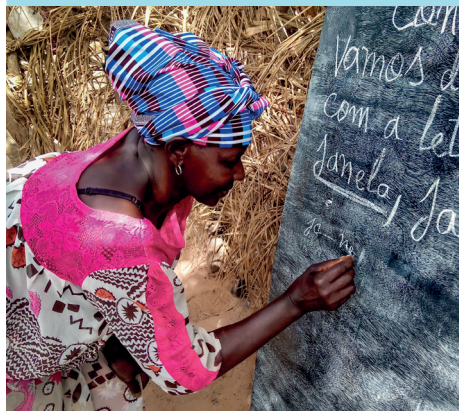 Com
Vamos d
com a let
Janela, Ja
ja - ne